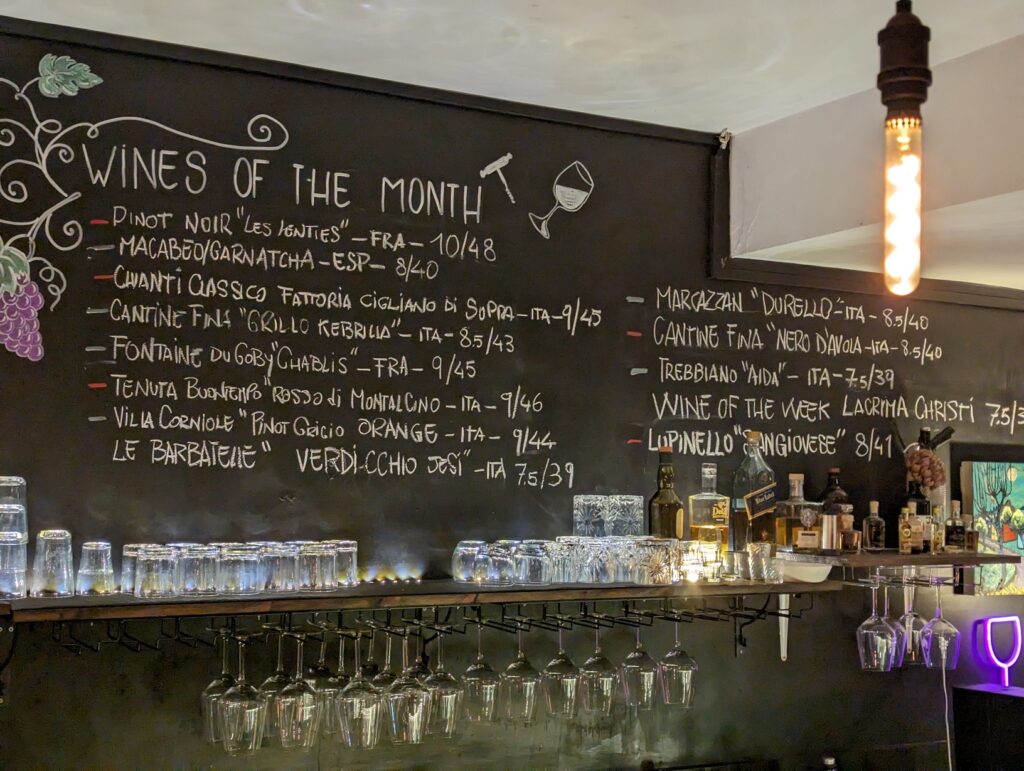 WINES OF THE MONTH
PINOT NOIR "LES IENTIES" - FRA - 10/48
MACABEO/GARNATCHA - ESP - 8/40
CHIANTI CLASSICO FATTORIA CIGLIANO DI SOPRA - ITA - 9/45
CANTINE FINA "GRILLO KEBRILLA" - ITA - 8.5/43
FONTAINE DU GOBY "CHABLIS" - FRA - 9/45
TENUTA BUONTEMPO "ROSSO di MONTALCINO - ITA - 9/46
VILLA CORNIOLE "PINOT GRIGIO ORANGE - ITA - 9/44
LE BARBATELLE" VERDICCHIO JESI" - ITA 7.5/39
MARCAZZAN "DURELLO" - ITA - 8.5/40
CANTINE FINA "NERO D'AVOLA - ITA - 8.5/40
TREBBIANO "AIDA" - ITA - 7.5/39
WINE OF THE WEEK LACRIMA CHRISTI 7.5/3
LUPINELLO "SANGIOVESE" 8/41